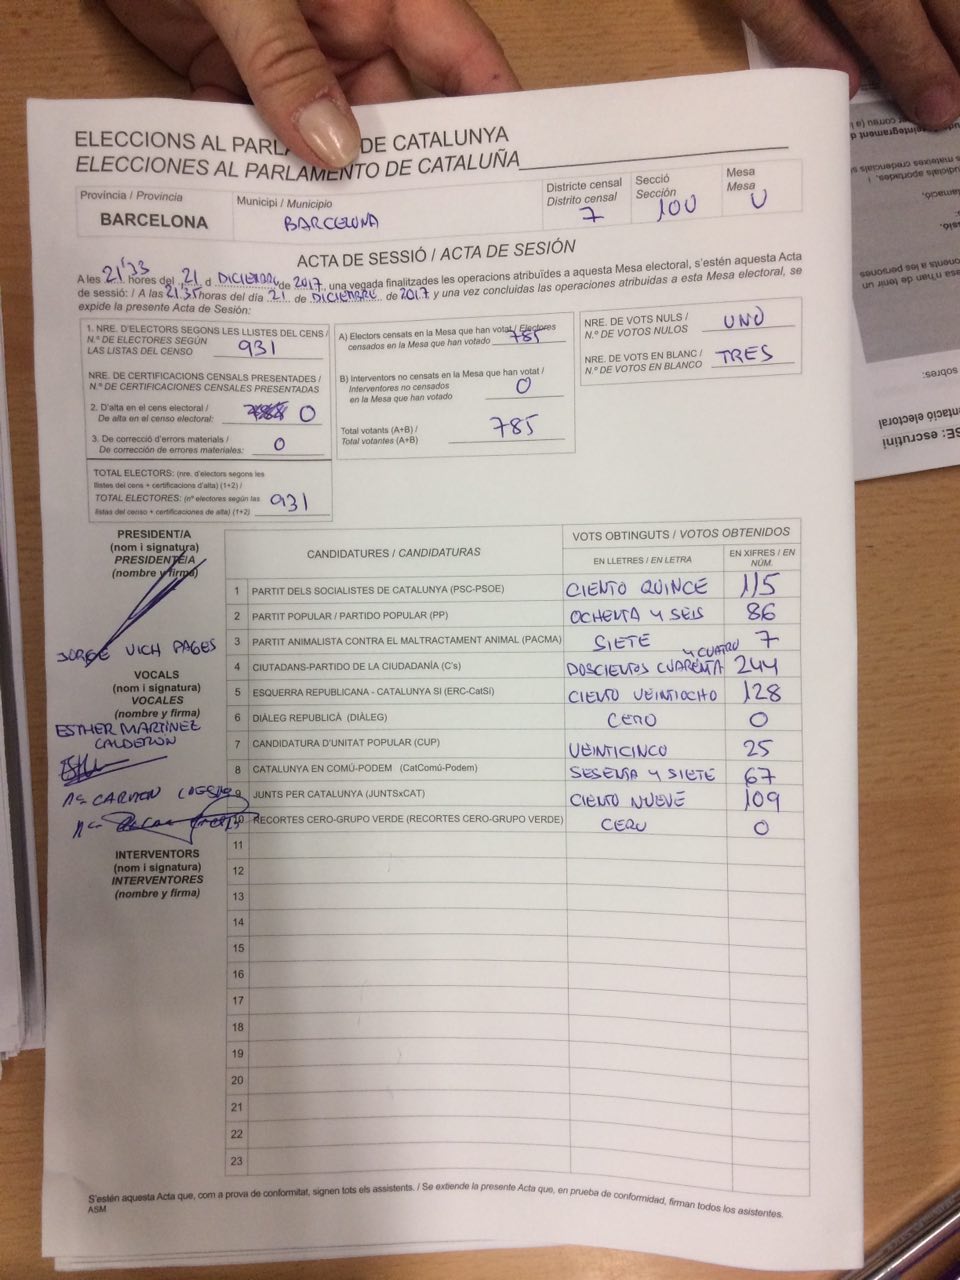 ELECCIONS AL PARLA DE CATALUNYA
ELECCIONES AL PARLAMENTO DE CATALUÑA
Província / Provincia
BARCELONA
Municipi / Municipio
BARCELONA
Districte censal
Distrito censal
7
Secció
Sección
100
Mesa
Mesa
U
ACTA DE SESSIÓ / ACTA DE SESIÓN
A les 21'33 hores del 21 d DICIEMBRE de 2017, una vegada finalitzades les operacions atribuïdes a aquesta Mesa electoral, s'estén aquesta Acta
de sessió: / A las 21.35 horas del día 21 de DICIEMBRE de 2017 y una vez concluidas las operaciones atribuidas a esta Mesa electoral, se
expide la presente Acta de Sesión:
1. NRE. D'ELECTORS SEGONS LES LLISTES DEL CENS /
N.º DE ELECTORES SEGÚN
LAS LISTAS DEL CENSO
931
NRE. DE CERTIFICACIONS CENSALS PRESENTADES /
N.º DE CERTIFICACIONES CENSALES PRESENTADAS
2. D'alta en el cens electoral /
De alta en el censo electoral: 0
3. De correcció d'errors materials /
De corrección de errores materiales: 0
TOTAL ELECTORS: (nre. d'electors segons les
llistes del cens + certificacions d'alta) (1+2) /
TOTAL ELECTORES: (nº electores según las
listas del censo + certificaciones de alta) (1+2)
931
A) Electors censats en la Mesa que han votat / Electores
censados en la Mesa que han votado 785
B) Interventors no censats en la Mesa que han votat /
Interventores no censados
en la Mesa que han votado
0
Total votants (A+B) /
Total votantes (A+B)
785
NRE. DE VOTS NULS /
N.º DE VOTOS NULOS
UNO
NRE. DE VOTS EN BLANC /
N.º DE VOTOS EN BLANCO
TRES
PRESIDENT/A
(nom i signatura)
PRESIDENTE/A
(nombre y firma)
JORGE VICH PAGES
VOCALS
(nom i signatura)
VOCALES
(nombre y firma)
ESTHER MARTINEZ
CALDERON
Mª CARMEN
INTERVENTORS
(nom i signatura)
INTERVENTORES
(nombre y firma)
CANDIDATURES / CANDIDATURAS
VOTS OBTINGUTS / VOTOS OBTENIDOS
EN LLETRES / EN LETRA
EN XIFRES / EN
NÚM.
1 PARTIT DELS SOCIALISTES DE CATALUNYA (PSC-PSOE) CIENTO QUINCE 115
2 PARTIT POPULAR / PARTIDO POPULAR (PP) OCHENTA Y SEIS 86
3 PARTIT ANIMALISTA CONTRA EL MALTRACTAMENT ANIMAL (PACMA) SIETE 7
4 CIUTADANS-PARTIDO DE LA CIUDADANÍA (C's) DOSCIENTOS CUARENTA Y CUATRO 244
5 ESQUERRA REPUBLICANA - CATALUNYA SI (ERC-CatSí) CIENTO VEINTIOCHO 128
6 DIÀLEG REPUBLICÀ (DIÀLEG) CERO 0
7 CANDIDATURA D'UNITAT POPULAR (CUP) VEINTICINCO 25
8 CATALUNYA EN COMÚ-PODEM (CatComú-Podem) SESENTA Y SIETE 67
9 JUNTS PER CATALUNYA (JUNTSxCAT) CIENTO NUEVE 109
10 RECORTES CERO-GRUPO VERDE (RECORTES CERO-GRUPO VERDE) CERO 0
11
12
13
14
15
16
17
18
19
20
21
22
23
S'estén aquesta Acta que, com a prova de conformitat, signen tots els assistents. / Se extiende la presente Acta que, en prueba de conformidad, firman todos los asistentes.
ASM